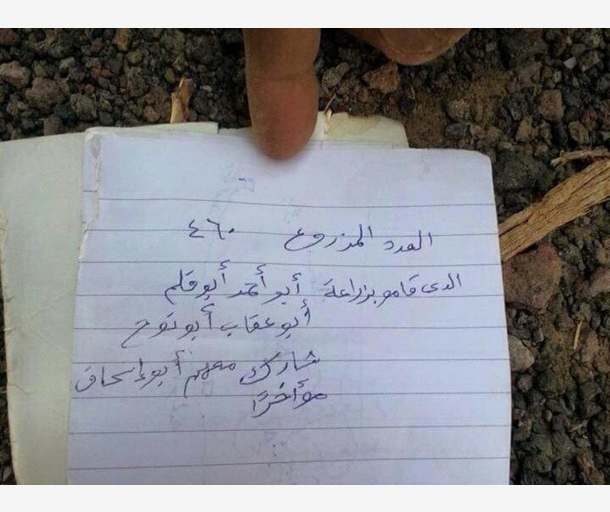 العدد المزروع ٤٦٠
الدى قامو بزراعة أبو أحمد أبو قلم
أبو عقاب أبو نوح
شارك معهم أبو إسحاق
مؤاخرًا